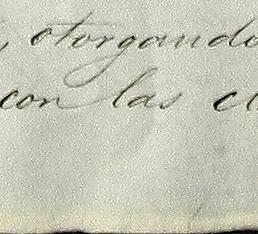 , otorgando
con las